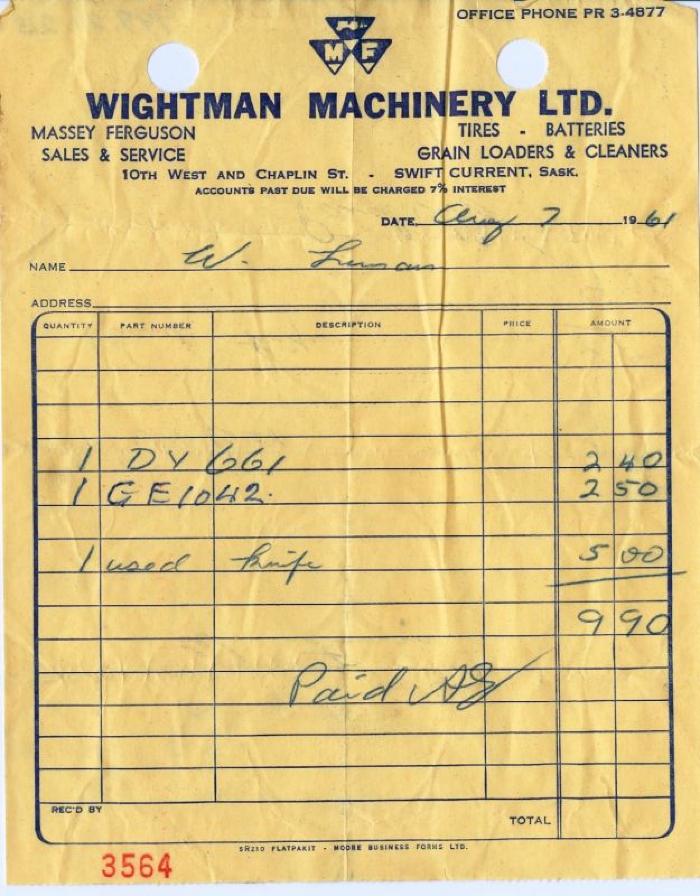 OFFICE PHONE PR 3-4877
M F
WIGHTMAN MACHINERY LTD.
MASSEY FERGUSON
SALES & SERVICE
TIRES - BATTERIES
GRAIN LOADERS & CLEANERS
10TH WEST AND CHAPLIN ST. - SWIFT CURRENT, SASK.
ACCOUNTS PAST DUE WILL BE CHARGED 7% INTEREST
DATE Aug 7 1961
NAME W.
ADDRESS
QUANTITY PART NUMBER DESCRIPTION PRICE AMOUNT
1 DY 661 2 40
1 GE1042. 2 50
1 used knife 5 00
9 90
Paid
REC'D BY
TOTAL
SR230 FLATPAKIT - MOORE BUSINESS FORMS LTD.
3564